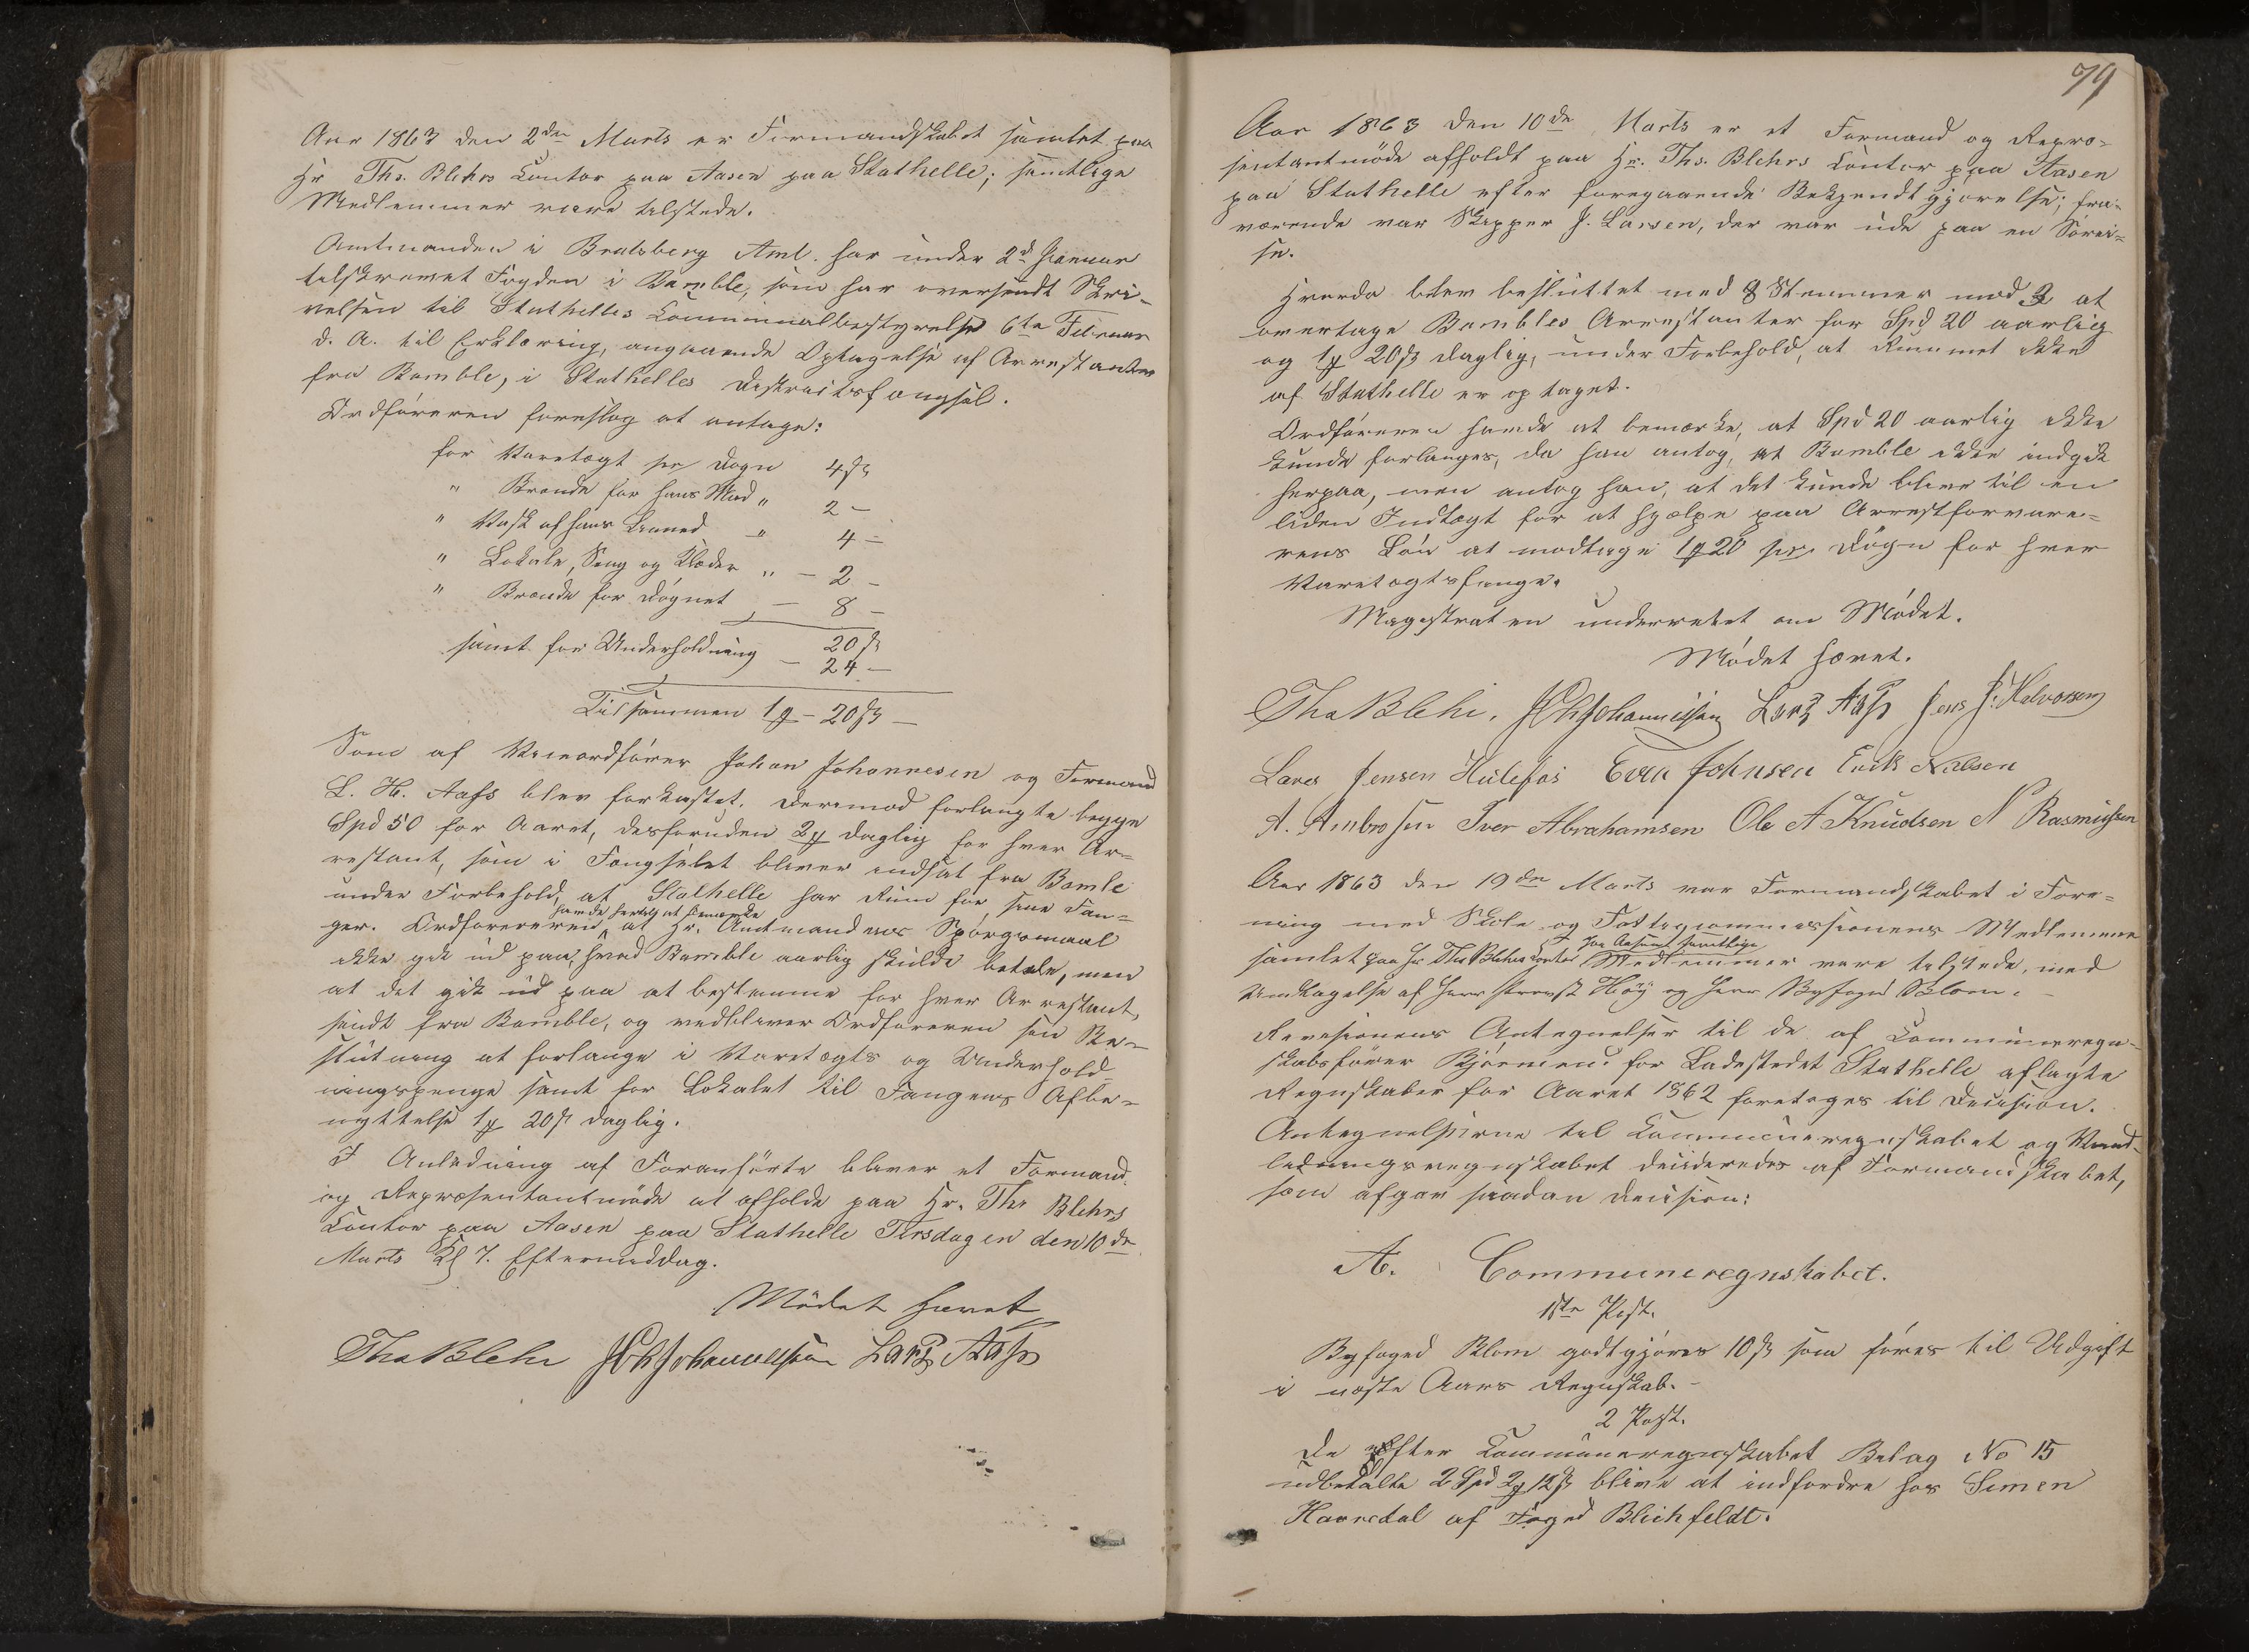 Aar 1863 den 2den Marts er Formandskabet samlet paa
Hr Ths. Blehrs Contor paa Aasen paa Stathelle; samtlige
Medlemmer vare tilstede.
Amtmanden i Bratsberg Amt. har under 2d Januar
tilskrevet Fogden i Bamble, som har oversendt Skri-
velsen til Stathelles Communalbestyrelse 6te Februar
d. A. til Erklæring, angaaende Optagelse af Arrestanter
fra Bamble, i Stathelles Distriktsfængsel.
Ordføreren foreslog at antage:
for Varetægt pr Døgn 4ß
" Brænde for hans Mad " 2 -
" Vask af hans Linned - " 4 -
" Lokale, Seng og Klæder " - 2 -
" Brænde for Døgnet - 8 -
20ß
samt for Underholdning - 24 -
Tilsammen 1 - 20ß -
Som af Viceordfører Johan Johannesen og Formand
L. H. Aass blev forkastet. Derimod forlangte begge
Spd 50 for Aaret, desforuden 2 daglig for hver Ar-
restant, som i Fængselet bliver indsat fra Bamle
under Forbehold, at Stathelle har Rum for sine Fan-
havde herlig at bemærke
ger. Ordføreren at Hr. Amtmandens Spørgsmaal
ikke gik ud paa, hvad Bamble aarlig skulde betale, men
at det gik ud paa at bestemme for hver Arrestant,
sendt fra Bamble, og vedbliver Ordføreren sin Be-
slutning at forlange i Varetægts og Underhold-
ningspenge samt for Lokalet til Fangens Afbe-
nyttelse 1 20ß daglig.
I Anledning af Foranførte bliver et Formand
og Repræsentantmøde at afholde paa Hr. Ths Blehrs
Contor paa Aasen paa Stathelle Tirsdagen den 10de
Marts Kl 7. Eftermiddag.
Mødet hævet
Ths Blehr Joh Johannessen Lars Aass
79
Aar 1863 den 10de Marts er et Formand og Repræ-
sentantmöde afholdt paa Hr. Ths. Blehrs Contor paa Aasen
paa Stathelle efter foregaaende Bekjendtgjørelse; fra-
værende var Skipper J. Larsen, der var ude paa en Sørei-
se.
Hvorda blev besluttet med 8 Stemmer mod 3 at
overtage Bambles Arrestanter for Spd 20 aarlig
og 1 20ß daglig, under Forbehold, at Rummet ikke
af Stathelle er optaget.
Ordføreren havde at bemærke, at Spd 20 aarlig ikke
kunde forlanges, da han antog, at Bamble ikke indgik
herpaa, men antog han, at det kunde blive til en
liden Indtægt for at hjælpe paa Arrestforvare-
rens Løn at modtage 1 20 pr. Døgn for hver
Varetægtsfange.
Magistraten underrettet om Mødet.
Mødet hævet.
Ths Blehr. Joh Johannessen Lars Aass Jens J. Halvorsen
Lars Jensen Hulefos Even Johnsen Erik Nielsen
A. Ambrosen Iver Abrahamsen Ole A Knudsen N Rasmussen
Aar 1863 den 19de Marts var Formandskabet i Fore-
ning med Skole og Fattigcommissionens Medlemmer
paa Aasen samtlige
samlet paa Hr Ths Blehrs Contor Medlemmer vare tilstede, med
Undtagelse af Herr Provst Høÿ og Herr Byfoged Blom. -
Revisionens Antegnelser til de af Communeregn-
skabsfører Bjørnen for Ladestedet Stathelle aflagte
Regnskaber for Aaret 1862 foretoges til Decision.
Antegnelserne til Communeregnskabet og Vand-
ledningsregnskabet desideredes af Formandskabet,
som afgav saadan Decision:
A. Communeregnskabet.
1ste Post.
Byfoged Blom godtgjøres 10ß som føres til Udgift
i næste Aars Regnskab. -
2 Post.
De efter Communeregnskabet Bilag No 15
udbetalte 2 Spd 2 12ß blive at indfordre hos Simen
Havredal af Foged Blichfeldt.